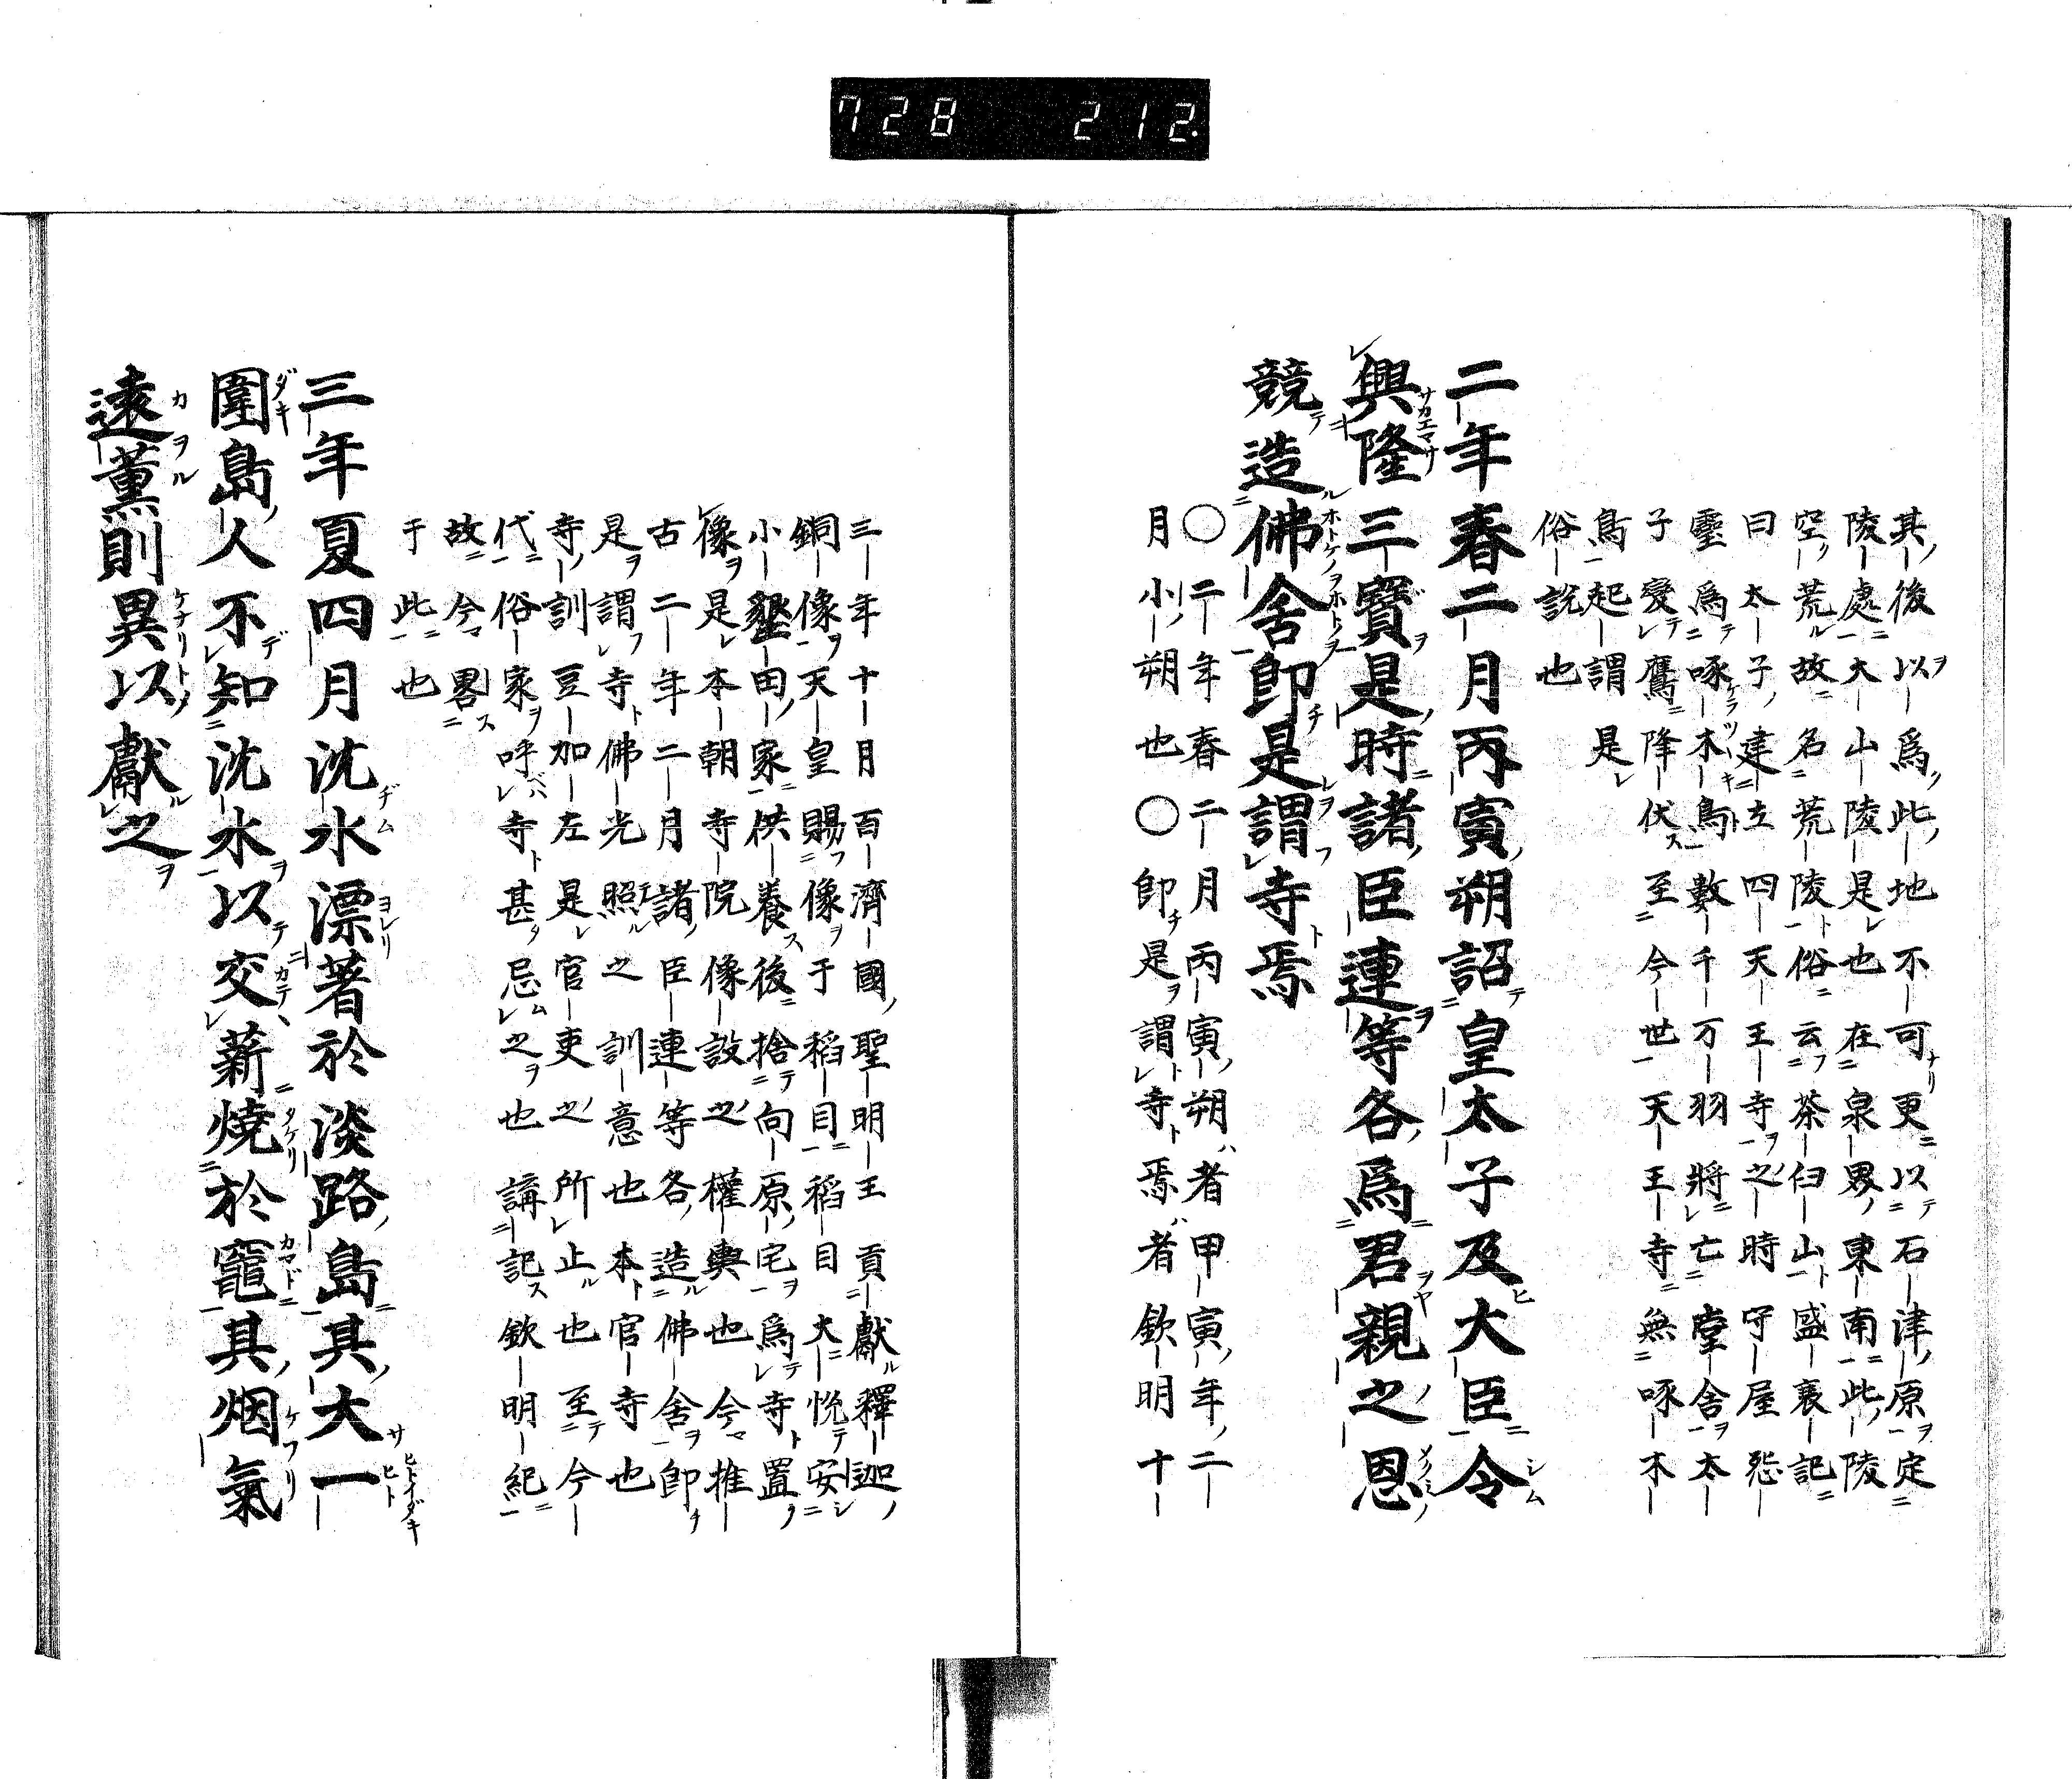 728 212
其後以爲此地不可更以石津原定
陵處大山陵是也在泉界東南此陵
空荒故名荒陵俗云茶臼山盛衰記
曰太子建立四天王寺之時守屋怨
靈爲啄木鳥數千万羽將亡堂舍太
子變鷹降伏至今世天王寺無啄木
鳥起謂是
俗説也
二年春二月丙寅朔詔皇太子及大臣令
興隆三寶是時諸臣連等各爲君親之恩
競造佛舍卽是謂寺焉
○二年春二月丙寅朔者甲寅年二
月小朔也○卽是謂寺焉者欽明十
三年十月百濟國聖明王貢獻釋迦
銅像天皇賜像于稻目稻目大悅安
小墾田家供養後捨向原宅爲寺置
像是本朝寺院像設之權輿也今推
古二年二月諸臣連等各造佛舍卽
是謂寺佛光照之訓意也本官寺也
寺訓豆加左是官吏之所止也至今
代俗家呼寺甚忌之也講記欽明紀
故今畧
于此也
三年夏四月沈水漂著於淡路島其大一
圍島人不知沈水以交薪燒於竈其烟氣
遠薫則異以獻之